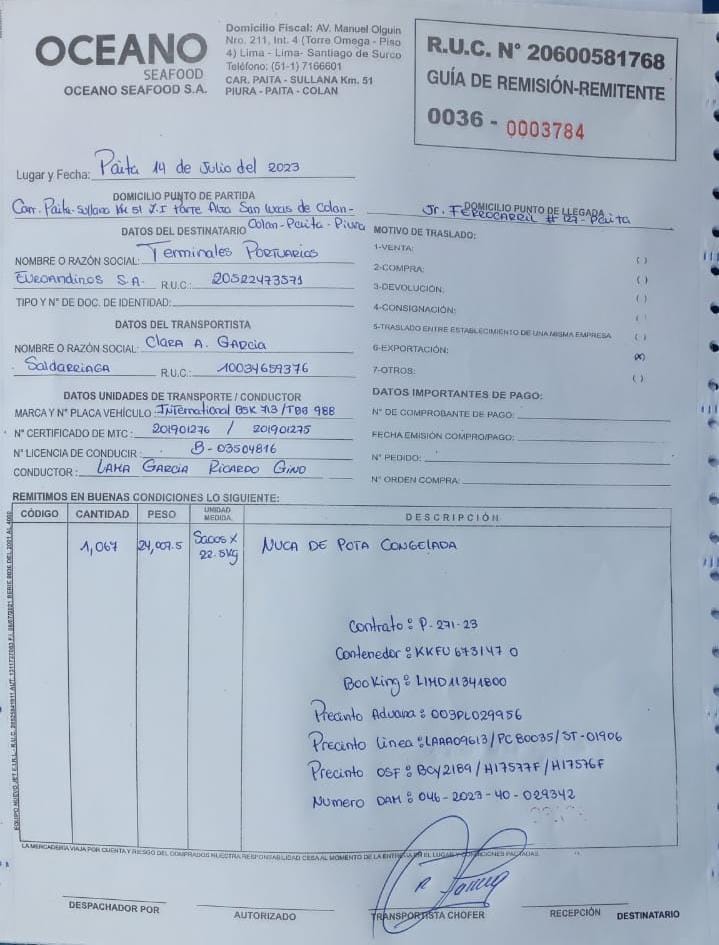 OCEANO
SEAFOOD
OCEANO SEAFOOD S.A.
Domicilio Fiscal: AV. Manuel Olguin
Nro. 211, Int. 4 (Torre Omega - Piso
4) Lima - Lima- Santiago de Surco
Teléfono: (51-1) 7166601
CAR. PAITA - SULLANA Km. 51
PIURA - PAITA - COLAN
R.U.C. N° 20600581768
GUÍA DE REMISIÓN-REMITENTE
0036 - 0003784
Lugar y Fecha: Paita 14 de Julio del 2023
DOMICILIO PUNTO DE PARTIDA
Carr. Paita-Sullana KM 51 Z.I Parte Alta San Lucas de Colan-
Colan-Paita-Piura
DOMICILIO PUNTO DE LLEGADA
Jr. FERROCARRIL # 127 - Paita
DATOS DEL DESTINATARIO
NOMBRE O RAZÓN SOCIAL: Terminales Portuarios
Euroandinos S.A. R.U.C.: 20522473571
TIPO Y N° DE DOC. DE IDENTIDAD:
MOTIVO DE TRASLADO:
1-VENTA: ( )
2-COMPRA: ( )
3-DEVOLUCIÓN: ( )
4-CONSIGNACIÓN: ( )
5-TRASLADO ENTRE ESTABLECIMIENTO DE UNA MISMA EMPRESA ( )
6-EXPORTACIÓN: (x)
7-OTROS: ( )
DATOS DEL TRANSPORTISTA
NOMBRE O RAZÓN SOCIAL: Clara A. Garcia
Saldarriaga R.U.C.: 10034659376
DATOS UNIDADES DE TRANSPORTE / CONDUCTOR
MARCA Y N° PLACA VEHÍCULO: International BSK 713/TBB 988
N° CERTIFICADO DE MTC: 201901276 / 201901275
N° LICENCIA DE CONDUCIR: B-03504816
CONDUCTOR: LAMA GARCIA RICARDO GINO
DATOS IMPORTANTES DE PAGO:
N° DE COMPROBANTE DE PAGO:
FECHA EMISIÓN COMPRO/PAGO:
N° PEDIDO:
N° ORDEN COMPRA:
REMITIMOS EN BUENAS CONDICIONES LO SIGUIENTE:
CÓDIGO CANTIDAD PESO UNIDAD MEDIDA DESCRIPCIÓN
1,067 24,007.5 Sacos x 22.5Kg NUCA DE POTA CONGELADA
Contrato: P-271-23
Contenedor: KKFU 673147 0
Booking: LIMD11341800
Precinto Aduana: 003PL029956
Precinto Linea: LAAA09613/PCB0035/ST-01906
Precinto OSF: BCY2189/H17577F/H17576F
Numero DAM: 046-2023-40-029342
LA MERCADERIA VIAJA POR CUENTA Y RIESGO DEL COMPRADOS NUESTRA RESPONSABILIDAD CESA AL MOMENTO DE LA ENTREGA EN EL LUGAR Y CONDICIONES PACTADAS.
DESPACHADOR POR
AUTORIZADO
TRANSPORTISTA CHOFER
RECEPCIÓN DESTINATARIO